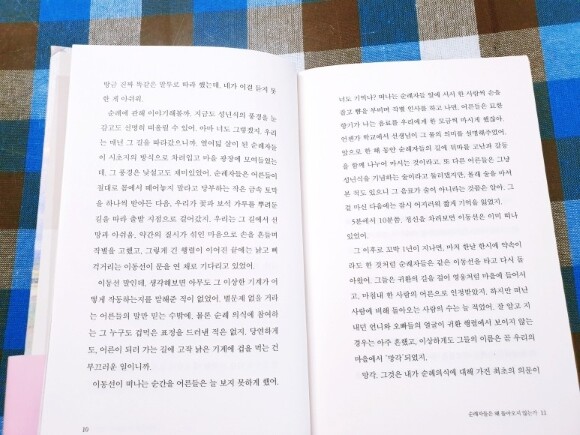 방금 진짜 똑같은 말투로 따라 했는데, 네가 이걸 듣지 못
한 게 아쉬워.
순례에 관해 이야기해볼까. 지금도 성년식의 풍경을 눈
감고도 선명히 떠올릴 수 있어. 아마 너도 그렇겠지. 우리
는 매년 그 길을 따라갔으니까. 열여덟 살이 된 순례자들
이 시초지의 방식으로 차려입고 마을 광장에 모여들었는
데, 그 풍경은 낯설고도 재미있었어. 순례자들은 어른들이
절대로 몸에서 떼어놓지 말라고 당부하는 작은 금속 토막
을 하나씩 받아든 다음, 우리가 꽃과 보석 가루를 뿌려둔
길을 따라 출발 지점으로 걸어갔지. 우리는 그 길에서 선
망과 아쉬움, 약간의 질시가 섞인 마음으로 손을 흔들며
작별을 고했고, 그렇게 긴 행렬이 이어진 끝에는 낡고 삐
걱거리는 이동선이 문을 연 채로 기다리고 있었어.
이동선 말인데, 생각해보면 아무도 그 이상한 기계가 어
떻게 작동하는지를 말해준 적이 없었어. 별문제 없을 거라
는 어른들의 말만 믿는 수밖에. 물론 순례 의식에 참여하
는 그 누구도 겁먹은 표정을 드러낸 적은 없지. 당연하게
도, 어른이 되러 가는 길에 고작 낡은 기계에 겁을 먹는 건
부끄러운 일이니까.
이동선이 떠나는 순간을 어른들은 늘 보지 못하게 했어.
10
너도 기억나? 떠나는 순례자들 앞에 서서 한 사람씩 손을
잡고 뺨을 부비며 작별 인사를 하고 나면, 어른들은 묘한
향기가 나는 음료를 우리에게 한 모금씩 마시게 했잖아.
언젠가 학교에서 선생님이 그 물의 의미를 설명해주었어.
앞으로 한 해 동안 순례자들의 길에 임하를 고난과 감동
을 함께 나누어 마시는 것이라고. 또 다른 어른들은 그냥
성년식을 기념하는 술이라고 둘러댔지만, 몰래 술을 마셔
본 적도 있으니 그 음료가 술이 아니라는 것쯤은 알아. 그
걸 마신 다음에는 잠시 어지러워 짧게 기억을 잃었지.
5분에서 10분쯤, 정신을 차려보면 이동선은 이미 떠나
있었어.
그 이후로 꼬박 1년이 지나면, 마치 한날 한시에 약속이
라도 한 것처럼 순례자들은 같은 이동선을 타고 다시 돌
아왔어. 그들은 귀환의 길을 걸어 영웅처럼 마을에 들어서
고, 마침내 한 사람의 어른으로 인정받았지. 하지만 떠난
사람에 비해 돌아오는 사람의 수는 늘 적었어. 잘 알고 지
내던 언니와 오빠들의 얼굴이 귀환 행렬에서 보이지 않는
경우는 아주 흔했고, 이상하게도 그들의 이름은 곧 우리의
마음에서 ‘망각’되었지.
망각. 그것은 내가 순례의식에 대해 가진 최초의 의문이
순례자들은 왜 돌아오지 않는가 11